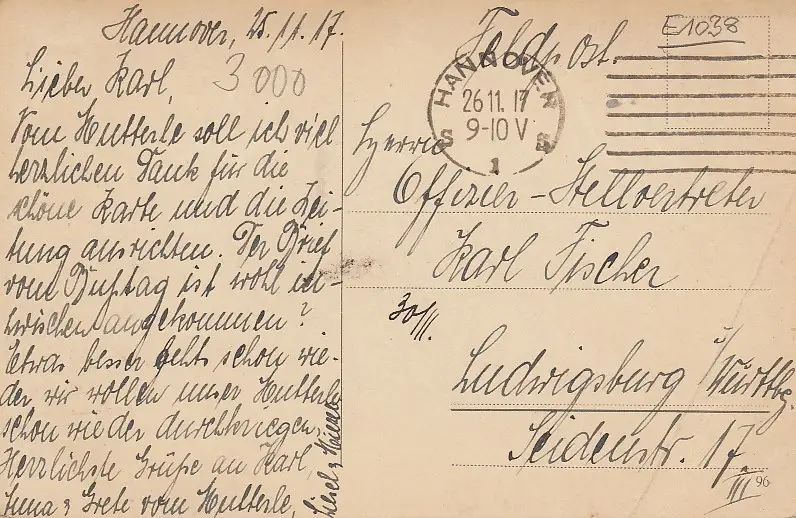 Hannover, 25.11.17.
Lieber Karl,
3000
Vom Mutterle soll ich viel
herzlichen Dank für die
schöne Karte und die Zei-
tung ausrichten. Der Brief
vom Bußtag ist wohl in-
zwischen angekommen?
Etwas besser gehts schon wie-
der wir wollen unser Mutterle
schon wieder durchkriegen.
Herzlichste Grüße an Karl,
& Grete vom Mutterle,
Liesel &
Feldpost.
E1038
HANNOVER
26.11.17
9-10 V
S
1
Herrn
Offizier-Stellvertreter
Karl Fischer
30/II.
Ludwigsburg i/Württbg.
Seidenstr. 17.
III
96